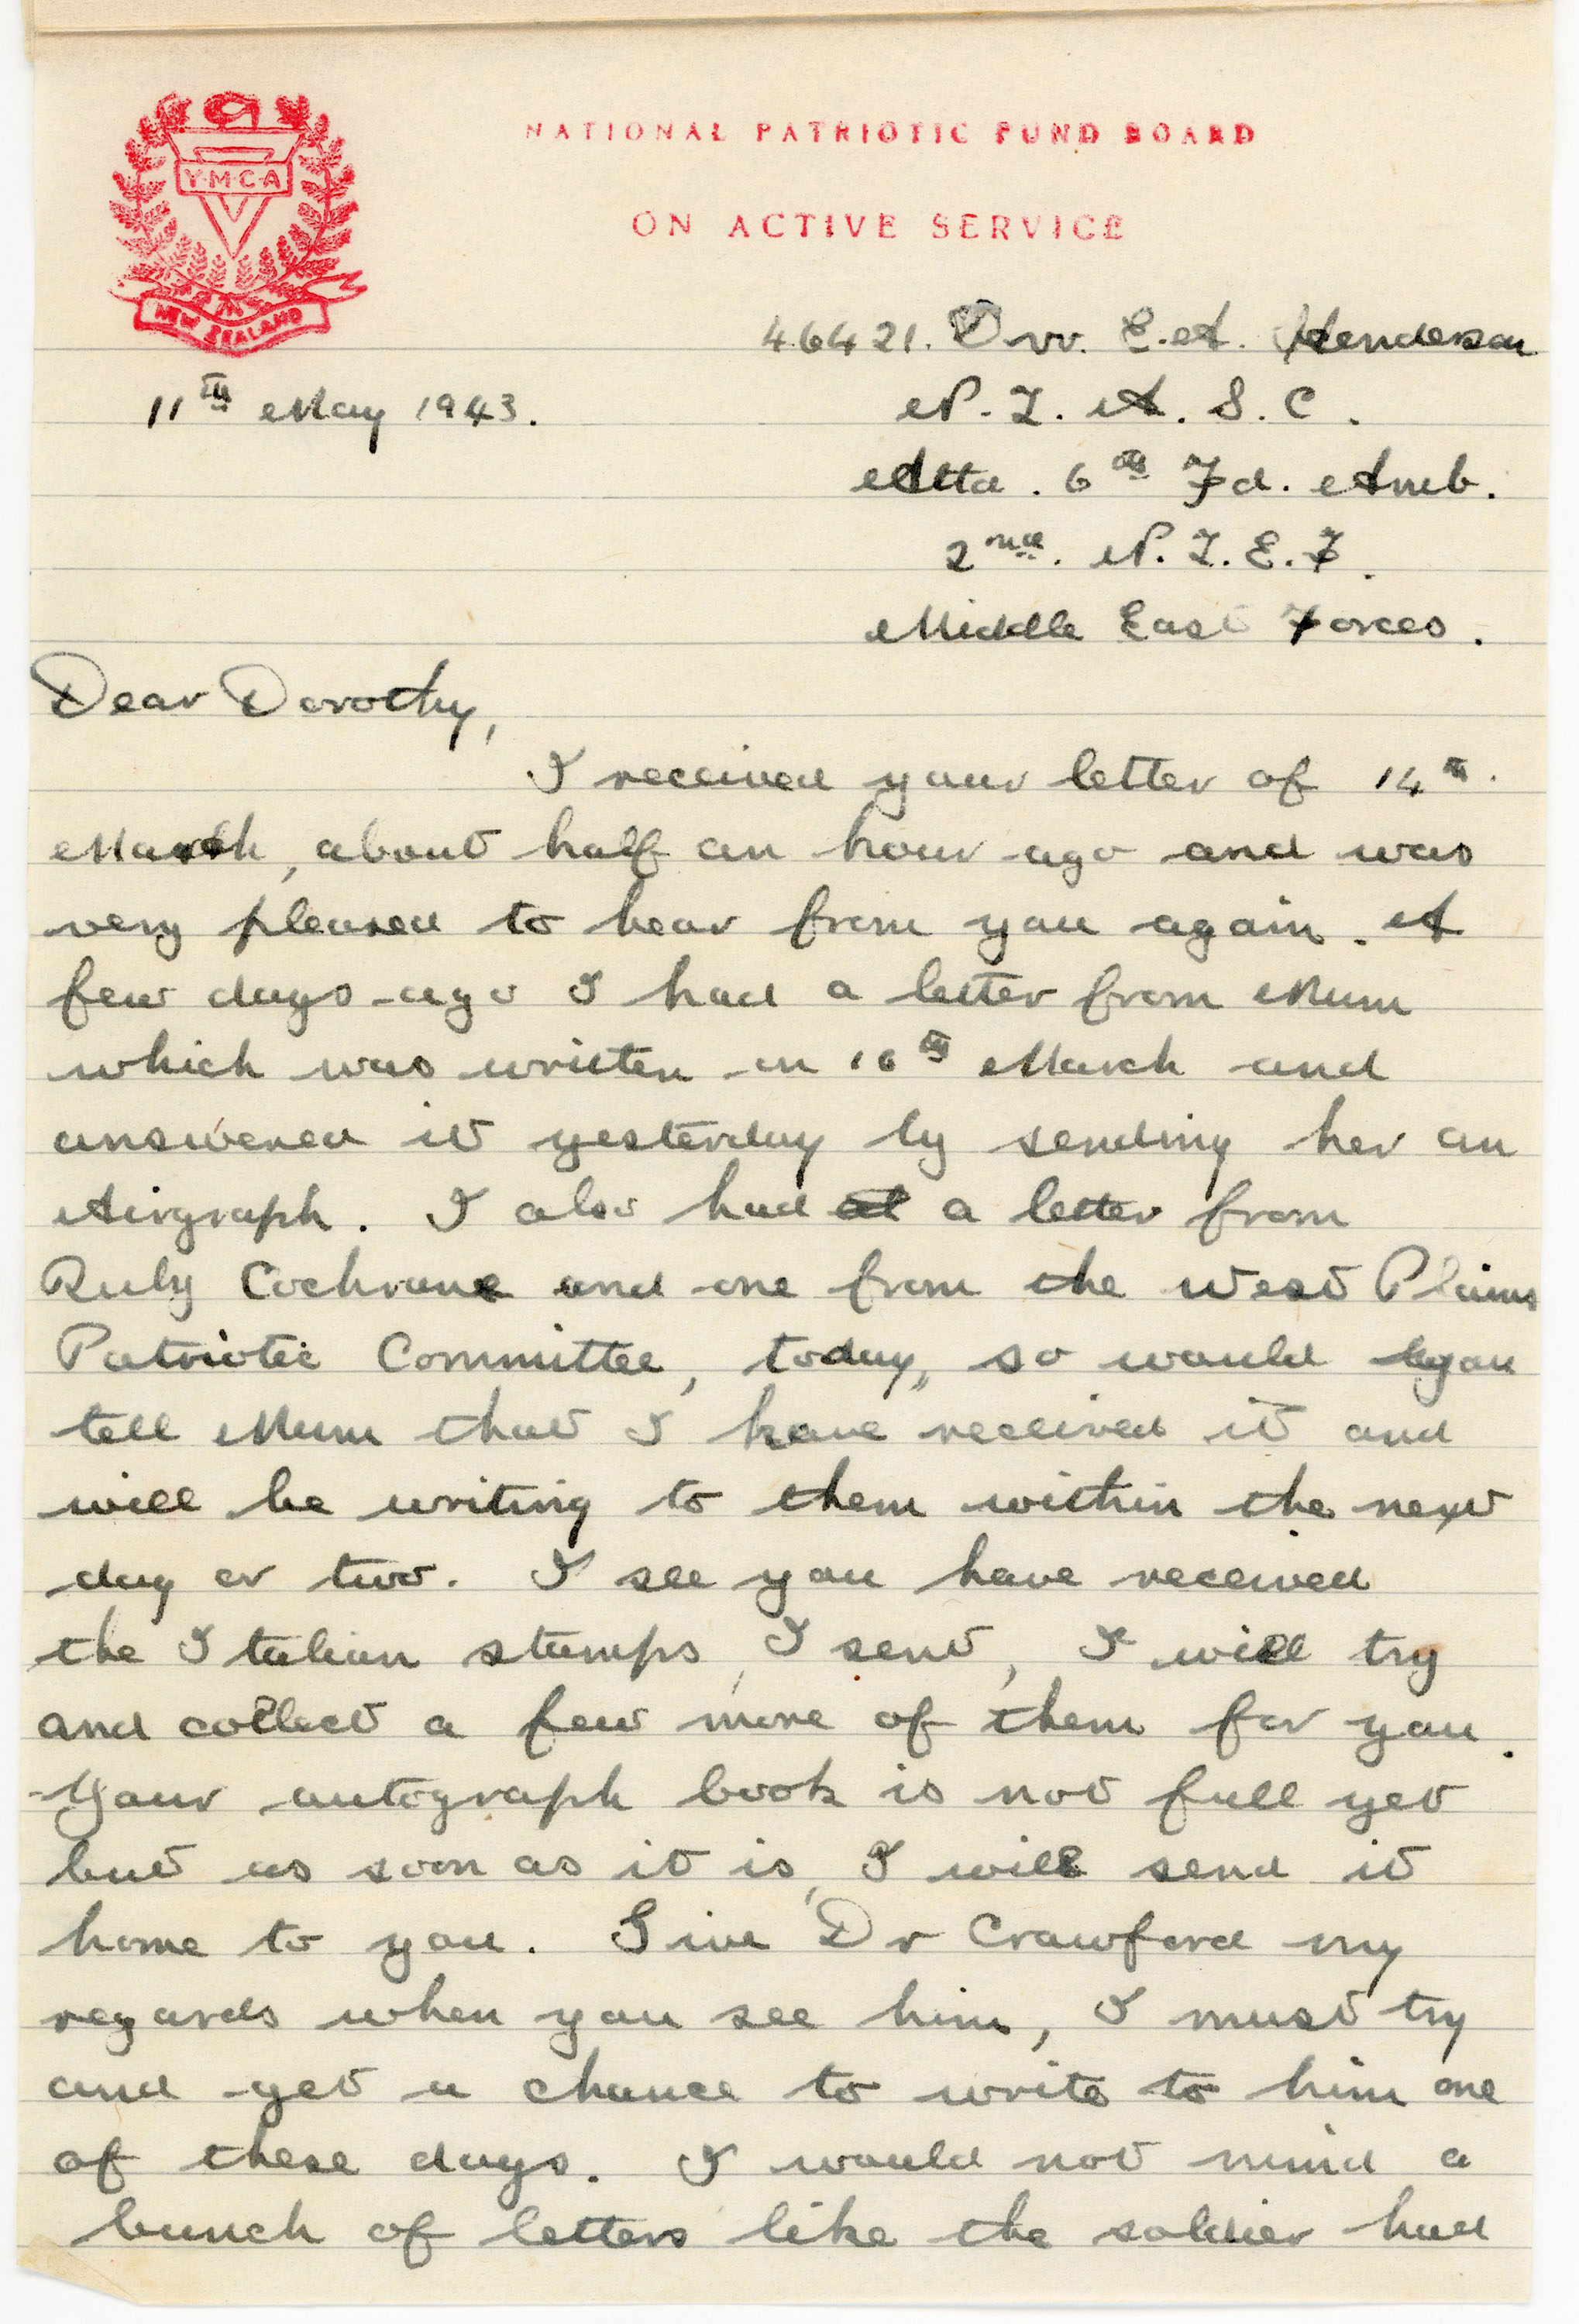 Y·M·C·A
NEW ZEALAND
NATIONAL PATRIOTIC FUND BOARD
ON ACTIVE SERVICE
46421. Dvr. E.A. Henderson
11th May 1943.
N. Z. A. S. C.
Atta. 6th Fd. Amb.
2nd. N. Z. E. F.
Middle East Forces.
Dear Dorothy,
I received your letter of 14th.
March, about half an hour ago and was
very pleased to hear from you again. A
few days ago I had a letter from Mum
which was written on 16th March and
answered it yesterday by sending her an
Airgraph. I also had a letter from
Ruby Cochrane and one from the West Plains
Patriotic Committee, today, so would you
tell Mum that I have received it and
will be writing to them within the next
day or two. I see you have received
the Italian stamps, I sent, I will try
and collect a few more of them for you.
Your autograph book is not full yet
but as soon as it is, I will send it
home to you. Give Dr Crawford my
regards when you see him, I must try
and get a chance to write to him one
of these days. I would not mind a
bunch of letters like the soldier had